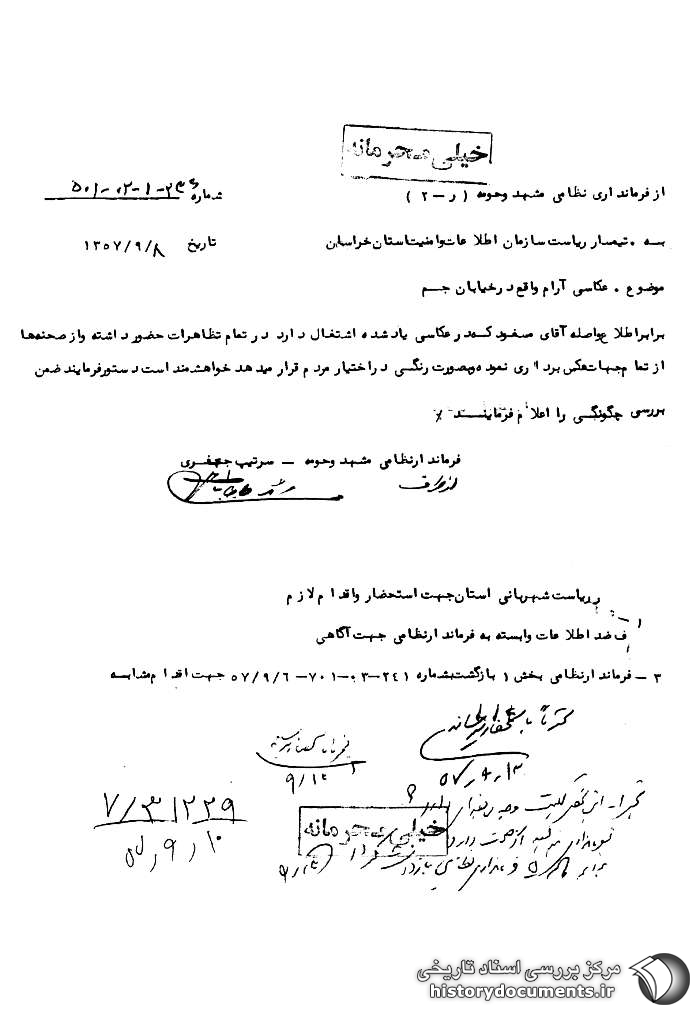 خیلی محرمانه
از فرمانداری نظامی مشهد وحومه ( ر-۲ )
شماره ۵۰۱-۰۲-۱-۲۳۶
بسه . تیمسار ریاست سازمان اطلاعات وامنیت استان خراسان
تاریخ ۱۳۵۷/۹/۸
موضوع . عکاسی آرام واقع در خیابان جم
برابر اطلاع واصله آقای مسعود که در عکاسی یاد شده اشتغال دارد در تمام تظاهرات حضور داشته واز صحنه‌ها
از تمام جهات عکس برداری نموده وبصورت رنگی در اختیار مردم قرار میدهد خواهشمند است دستور فرمایند ضمن
بررسی چگونگی را اعلام فرمایند ٪
فرماندار نظامی مشهد وحومه – سرتیپ جعفری
از طرف
ریاست شهربانی استان جهت استحضار واقدام لازم
ف ضد اطلاعات وابسته به فرماندار نظامی جهت آگاهی
۳ – فرماندار نظامی بخش ۱ بازگشت بشماره ۲۴۱-۰۳-۷۰۱-۵۷/۹/۶ جهت اقدام مشابه
۹/۱۲
۵۷٫۹٫۱۲
۷/۳۱۲۲۹
۵۷٫۹٫۱۰
خیلی محرمانه
مرکز بررسی اسناد تاریخی
historydocuments.ir